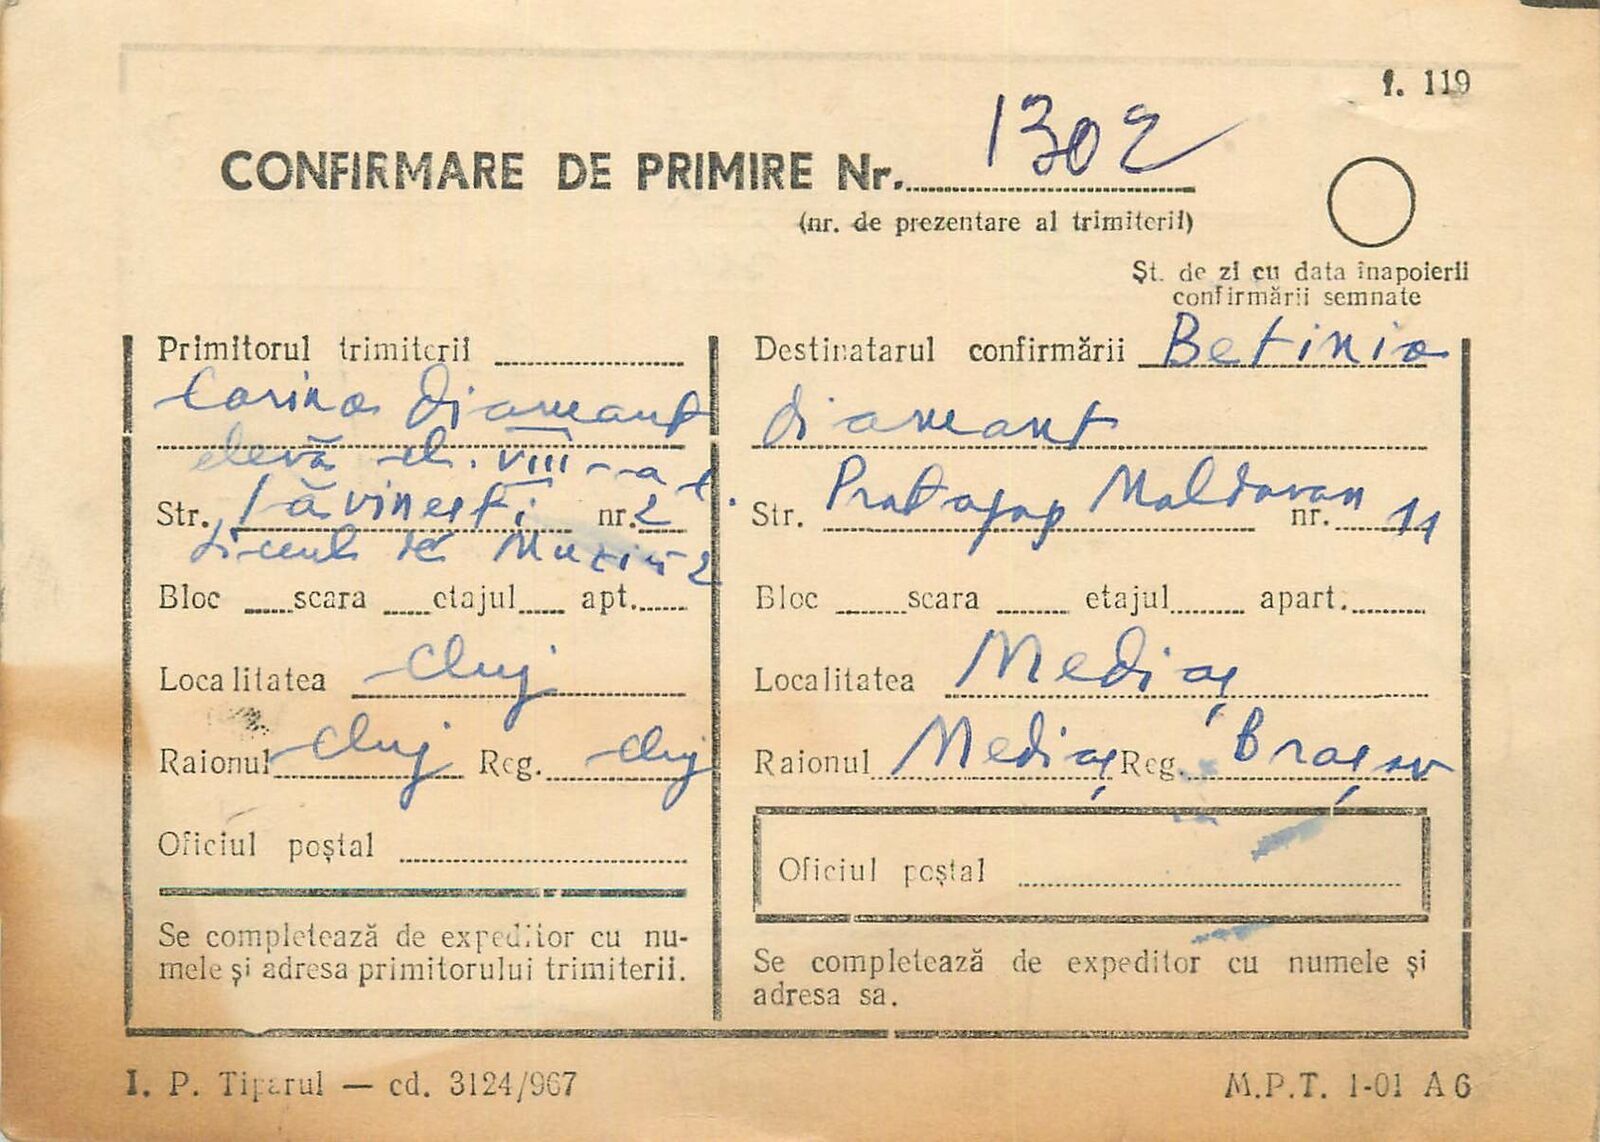 f. 119
CONFIRMARE DE PRIMIRE Nr. 1302
(nr. de prezentare al trimiterii)
Șt. de zi cu data înapoierii
confirmării semnate
Primitorul trimiterii
Corina Diamant
elevă cl. VIII-a
Str. Săvinești nr. 2
Liceul de Muzică
Bloc scara etajul apt.
Localitatea Cluj
Raionul Cluj Reg. Cluj
Oficiul poștal
Se completează de expeditor cu nu-
mele și adresa primitorului trimiterii.
Destinatarul confirmării Betinia
Diamant
Str. Protopop Moldovan nr. 11
Bloc scara etajul apart.
Localitatea Mediaș
Raionul Mediaș Reg. Brașov
Oficiul poștal
Se completează de expeditor cu numele și
adresa sa.
I. P. Tiparul — cd. 3124/967
M.P.T. 1-01 A6